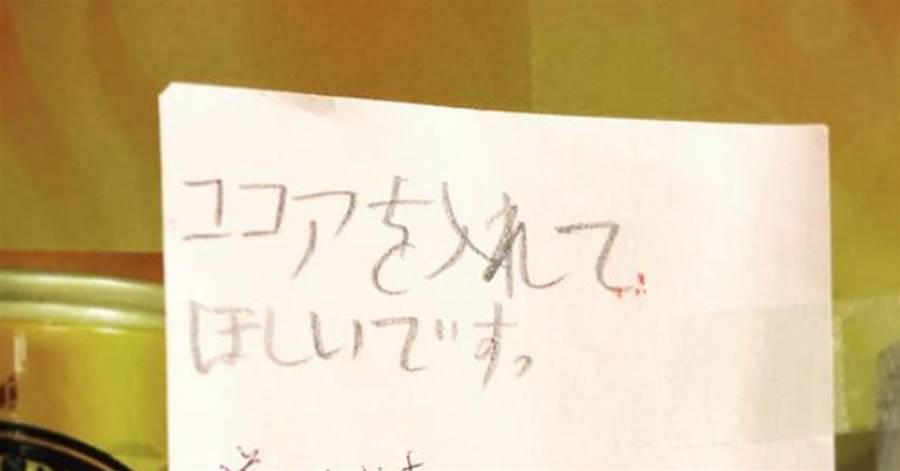 ココアを入れて
ほしいです。